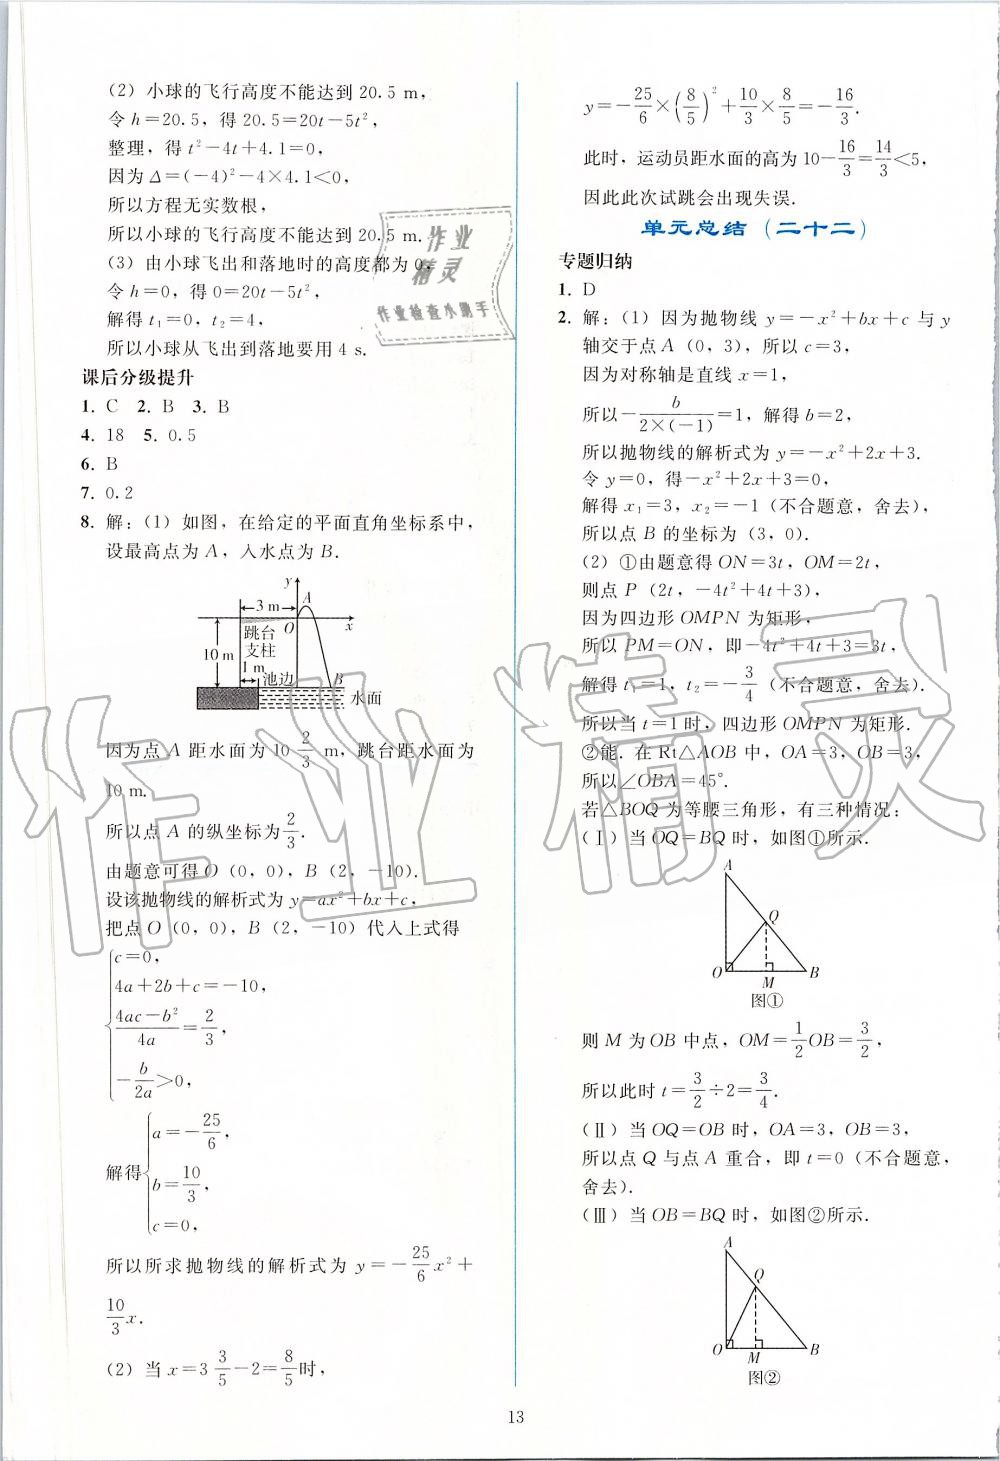 (2) 小球的飞行高度不能达到 20.5 m,
令 h=20.5, 得 20.5=20t-5t²,
整理, 得 t²-4t+4.1=0,
因为 Δ=(-4)²-4×4.1<0,
所以方程无实数根,
所以小球的飞行高度不能达到 20.5 m.
(3) 由小球飞出和落地时的高度都为 0,
令 h=0, 得 0=20t-5t²,
解得 t₁=0, t₂=4,
所以小球从飞出到落地要用 4 s.
课后分级提升
1. C 2. B 3. B
4. 18 5. 0.5
6. B
7. 0.2
8. 解: (1) 如图, 在给定的平面直角坐标系中,
设最高点为 A, 入水点为 B.
y
A
3 m
O
x
跳台
支柱
10 m
1 m
池边
B
水面
因为点 A 距水面为 10 2/3 m, 跳台距水面为
10 m.
所以点 A 的纵坐标为 2/3.
由题意可得 O (0, 0), B (2, -10).
设该抛物线的解析式为 y=ax²+bx+c,
把点 O (0, 0), B (2, -10) 代入上式得
c=0,
4a+2b+c=-10,
(4ac-b²)/4a=2/3,
-b/2a>0,
解得
a=-25/6,
b=10/3,
c=0,
所以所求抛物线的解析式为 y=-25/6 x²+
10/3 x.
(2) 当 x=3 3/5-2=8/5 时,
y=-25/6×(8/5)²+10/3×8/5=-16/3.
此时, 运动员距水面的高为 10-16/3=14/3<5,
因此此次试跳会出现失误.
单元总结 (二十二)
专题归纳
1. D
2. 解: (1) 因为抛物线 y=-x²+bx+c 与 y
轴交于点 A (0, 3), 所以 c=3,
因为对称轴是直线 x=1,
所以 -b/(2×(-1))=1, 解得 b=2,
所以抛物线的解析式为 y=-x²+2x+3.
令 y=0, 得 -x²+2x+3=0,
解得 x₁=3, x₂=-1 (不合题意, 舍去),
所以点 B 的坐标为 (3, 0).
(2) ①由题意得 ON=3t, OM=2t,
则点 P (2t, -4t²+4t+3),
因为四边形 OMPN 为矩形,
所以 PM=ON, 即 -4t²+4t+3=3t,
解得 t₁=1, t₂=-3/4 (不合题意, 舍去).
所以当 t=1 时, 四边形 OMPN 为矩形.
②能. 在 Rt△AOB 中, OA=3, OB=3,
所以∠OBA=45°.
若△BOQ 为等腰三角形, 有三种情况:
(Ⅰ) 当 OQ=BQ 时, 如图①所示.
A
Q
O M B
图①
则 M 为 OB 中点, OM=1/2 OB=3/2,
所以此时 t=3/2÷2=3/4.
(Ⅱ) 当 OQ=OB 时, OA=3, OB=3,
所以点 Q 与点 A 重合, 即 t=0 (不合题意,
舍去).
(Ⅲ) 当 OB=BQ 时, 如图②所示.
A
Q
O M B
图②
13
作业
精灵
作业检查小助手
作业精灵